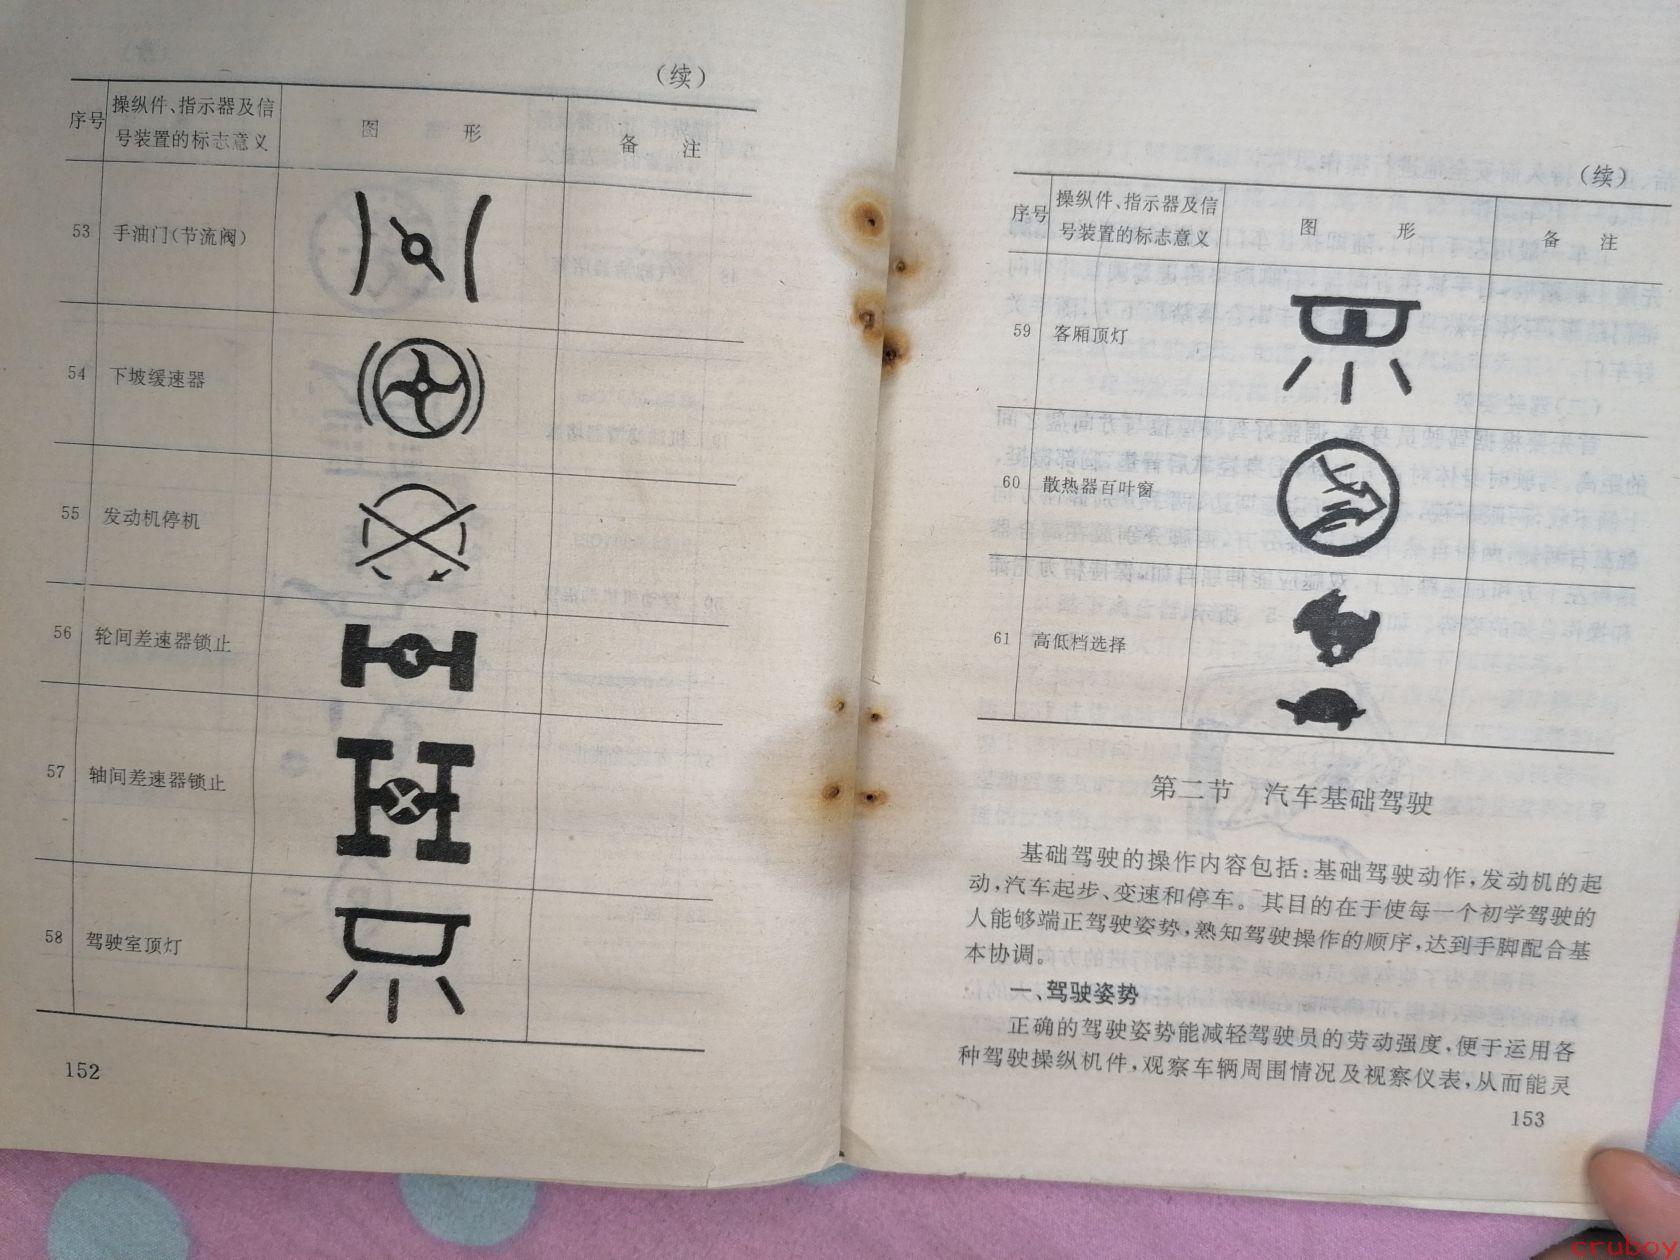 （续）
序号
操纵件、指示器及信
号装置的标志意义
图 形
备 注
53 手油门（节流阀）
54 下坡缓速器
55 发动机停机
56 轮间差速器锁止
57 轴间差速器锁止
58 驾驶室顶灯
152
（续）
序号
操纵件、指示器及信
号装置的标志意义
图 形
备 注
59 客厢顶灯
60 散热器百叶窗
61 高低档选择
第二节 汽车基础驾驶
基础驾驶的操作内容包括：基础驾驶动作，发动机的起
动，汽车起步、变速和停车。其目的在于使每一个初学驾驶的
人能够端正驾驶姿势，熟知驾驶操作的顺序，达到手脚配合基
本协调。
一、驾驶姿势
正确的驾驶姿势能减轻驾驶员的劳动强度，便于运用各
种驾驶操纵机件，观察车辆周围情况及视察仪表，从而能灵
153
cruboy